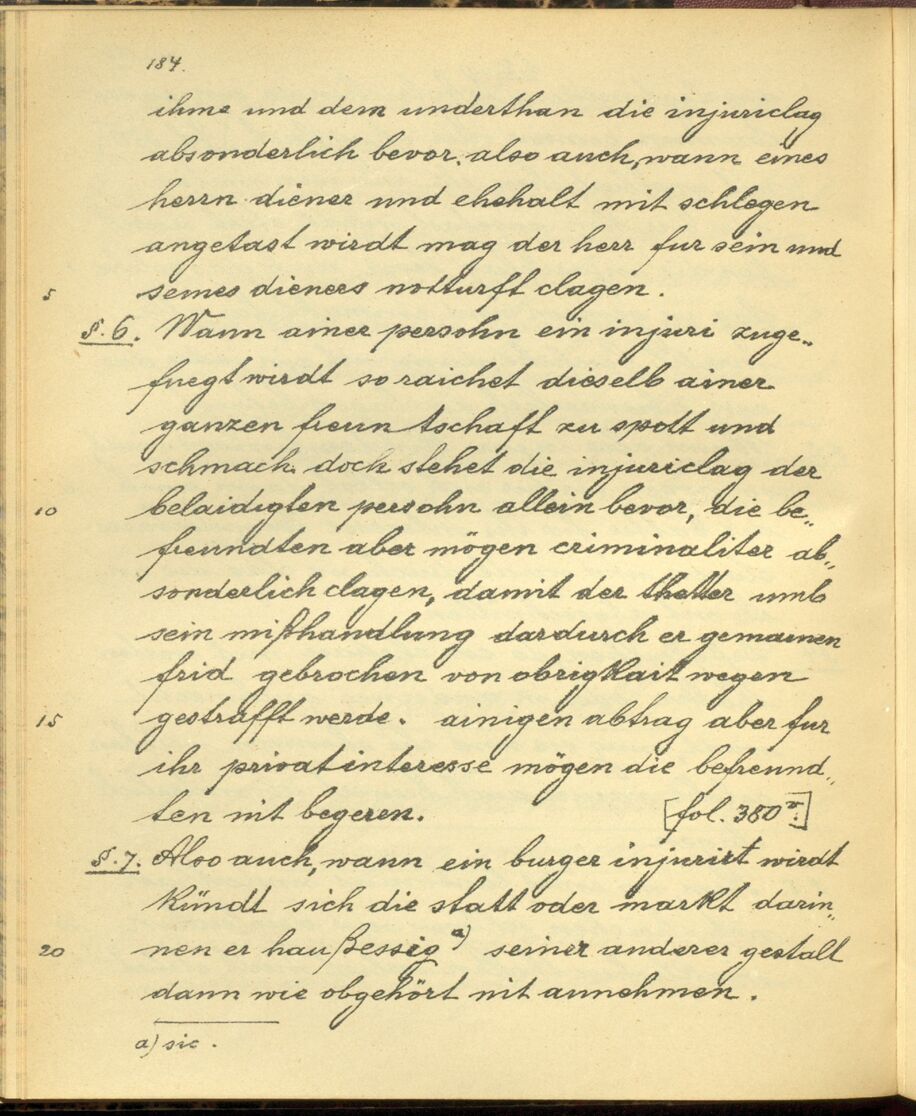 184.
ihme und dem underthan die injuriclag
absonderlich bevor, also auch, wann eines
herrn diener und ehehalt mit schlegen
angetast wirdt mag der herr fur sein und
5 seines dieners notturft clagen.
§. 6. Wann ainer persohn ein injuri zuge„
fuegt wirdt so raichet dieselb ainer
ganzen freuntschaft zu spott und
schmach, doch stehet die injuriclag der
10 belaidigten persohn allein bevor, die be„
freundten aber mögen criminaliter ab„
sonderlich clagen, damit der thetter umb
sein mißhandlung dardurch er gemainen
frid gebrochen von obrigkait wegen
15 gestrafft werde. ainigen abtrag aber fur
ihr privatinteresse mögen die befreund„
ten nit begeren. [fol. 380v.]
§. 7. Also auch, wann ein burger injurirt wirdt
kündt sich die statt oder markt darin„
20 nen er haußessig a) seiner anderer gestalt
dann wie obgehört nit annehmen.
a) sic.